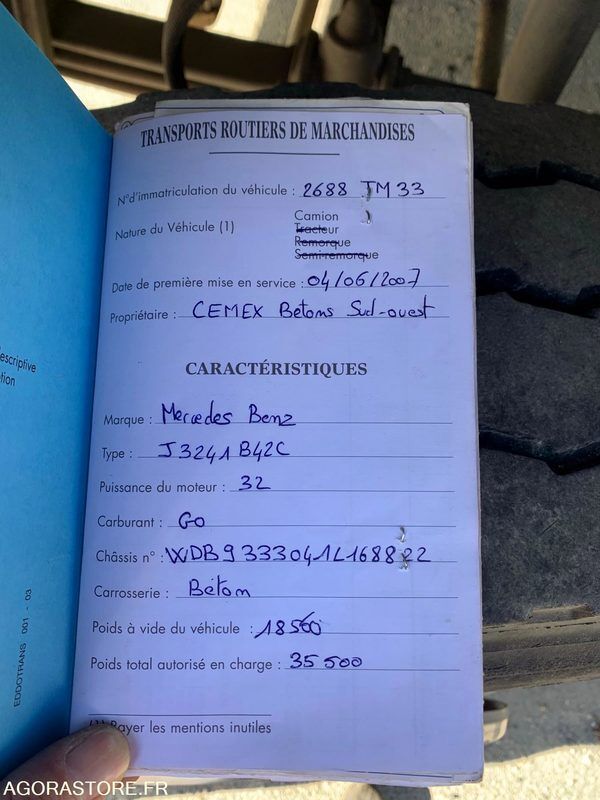 escriptive
tion
EDDOTRANS 001 - 03
TRANSPORTS ROUTIERS DE MARCHANDISES
N° d'immatriculation du véhicule : 2688 TM 33
Nature du Véhicule (1)
Camion
Tracteur
Remorque
Semi-remorque
Date de première mise en service : 04/06/2007
Propriétaire : CEMEX Bétons Sud-ouest
CARACTÉRISTIQUES
Marque : Mercedes Benz
Type : J3241B42C
Puissance du moteur : 32
Carburant : GO
Châssis n° : WDB9333041L168822
Carrosserie : Béton
Poids à vide du véhicule : 18560
Poids total autorisé en charge : 35 500
(1) Rayer les mentions inutiles
AGORASTORE.FR